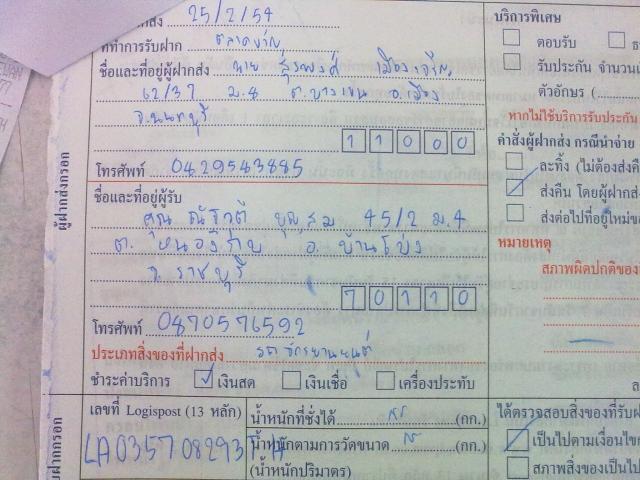 25/2/54
บริการพิเศษ
ที่ทำการรับฝาก ตลาดขวัญ
ตอบรับ
ชื่อและที่อยู่ผู้ฝากส่ง นาย เมืองเจริญ
รับประกัน จำนวนเ
62/37 ม.8 ต.บางเขน อ.เมือง
ตัวอักษร (
จ.นนทบุรี
หากไม่ใช้บริการรับประกัน
11000
คำสั่งผู้ฝากส่ง กรณีนำจ่าย
โทรศัพท์ 0829543885
ละทิ้ง (ไม่ต้องส่งคื
ชื่อและที่อยู่ผู้รับ
ส่งคืน โดยผู้ฝากส่
คุณ ณัฐวุฒิ บุญสม 45/2 ม.4
ส่งต่อไปที่อยู่ใหม่ขอ
ต. อ. บ้านโป่ง
หมายเหตุ
จ. ราชบุรี
สภาพผิดปกติของ
70110
โทรศัพท์ 0870576592
ประเภทสิ่งของที่ฝากส่ง รถจักรยานยนต์
ชำระค่าบริการ เงินสด เงินเชื่อ เครื่องประทับ
ผู้ฝากส่งกรอก
เลขที่ Logispost (13 หลัก)
น้ำหนักที่ชั่งได้ (กก.)
ได้ตรวจสอบสิ่งของที่รับฝ
LA035708293TH
น้ำหนักตามการวัดขนาด (กก.)
เป็นไปตามเงื่อนไข
(น้ำหนักปริมาตร)
สภาพสิ่งของเป็นไป
รับฝากกรอก